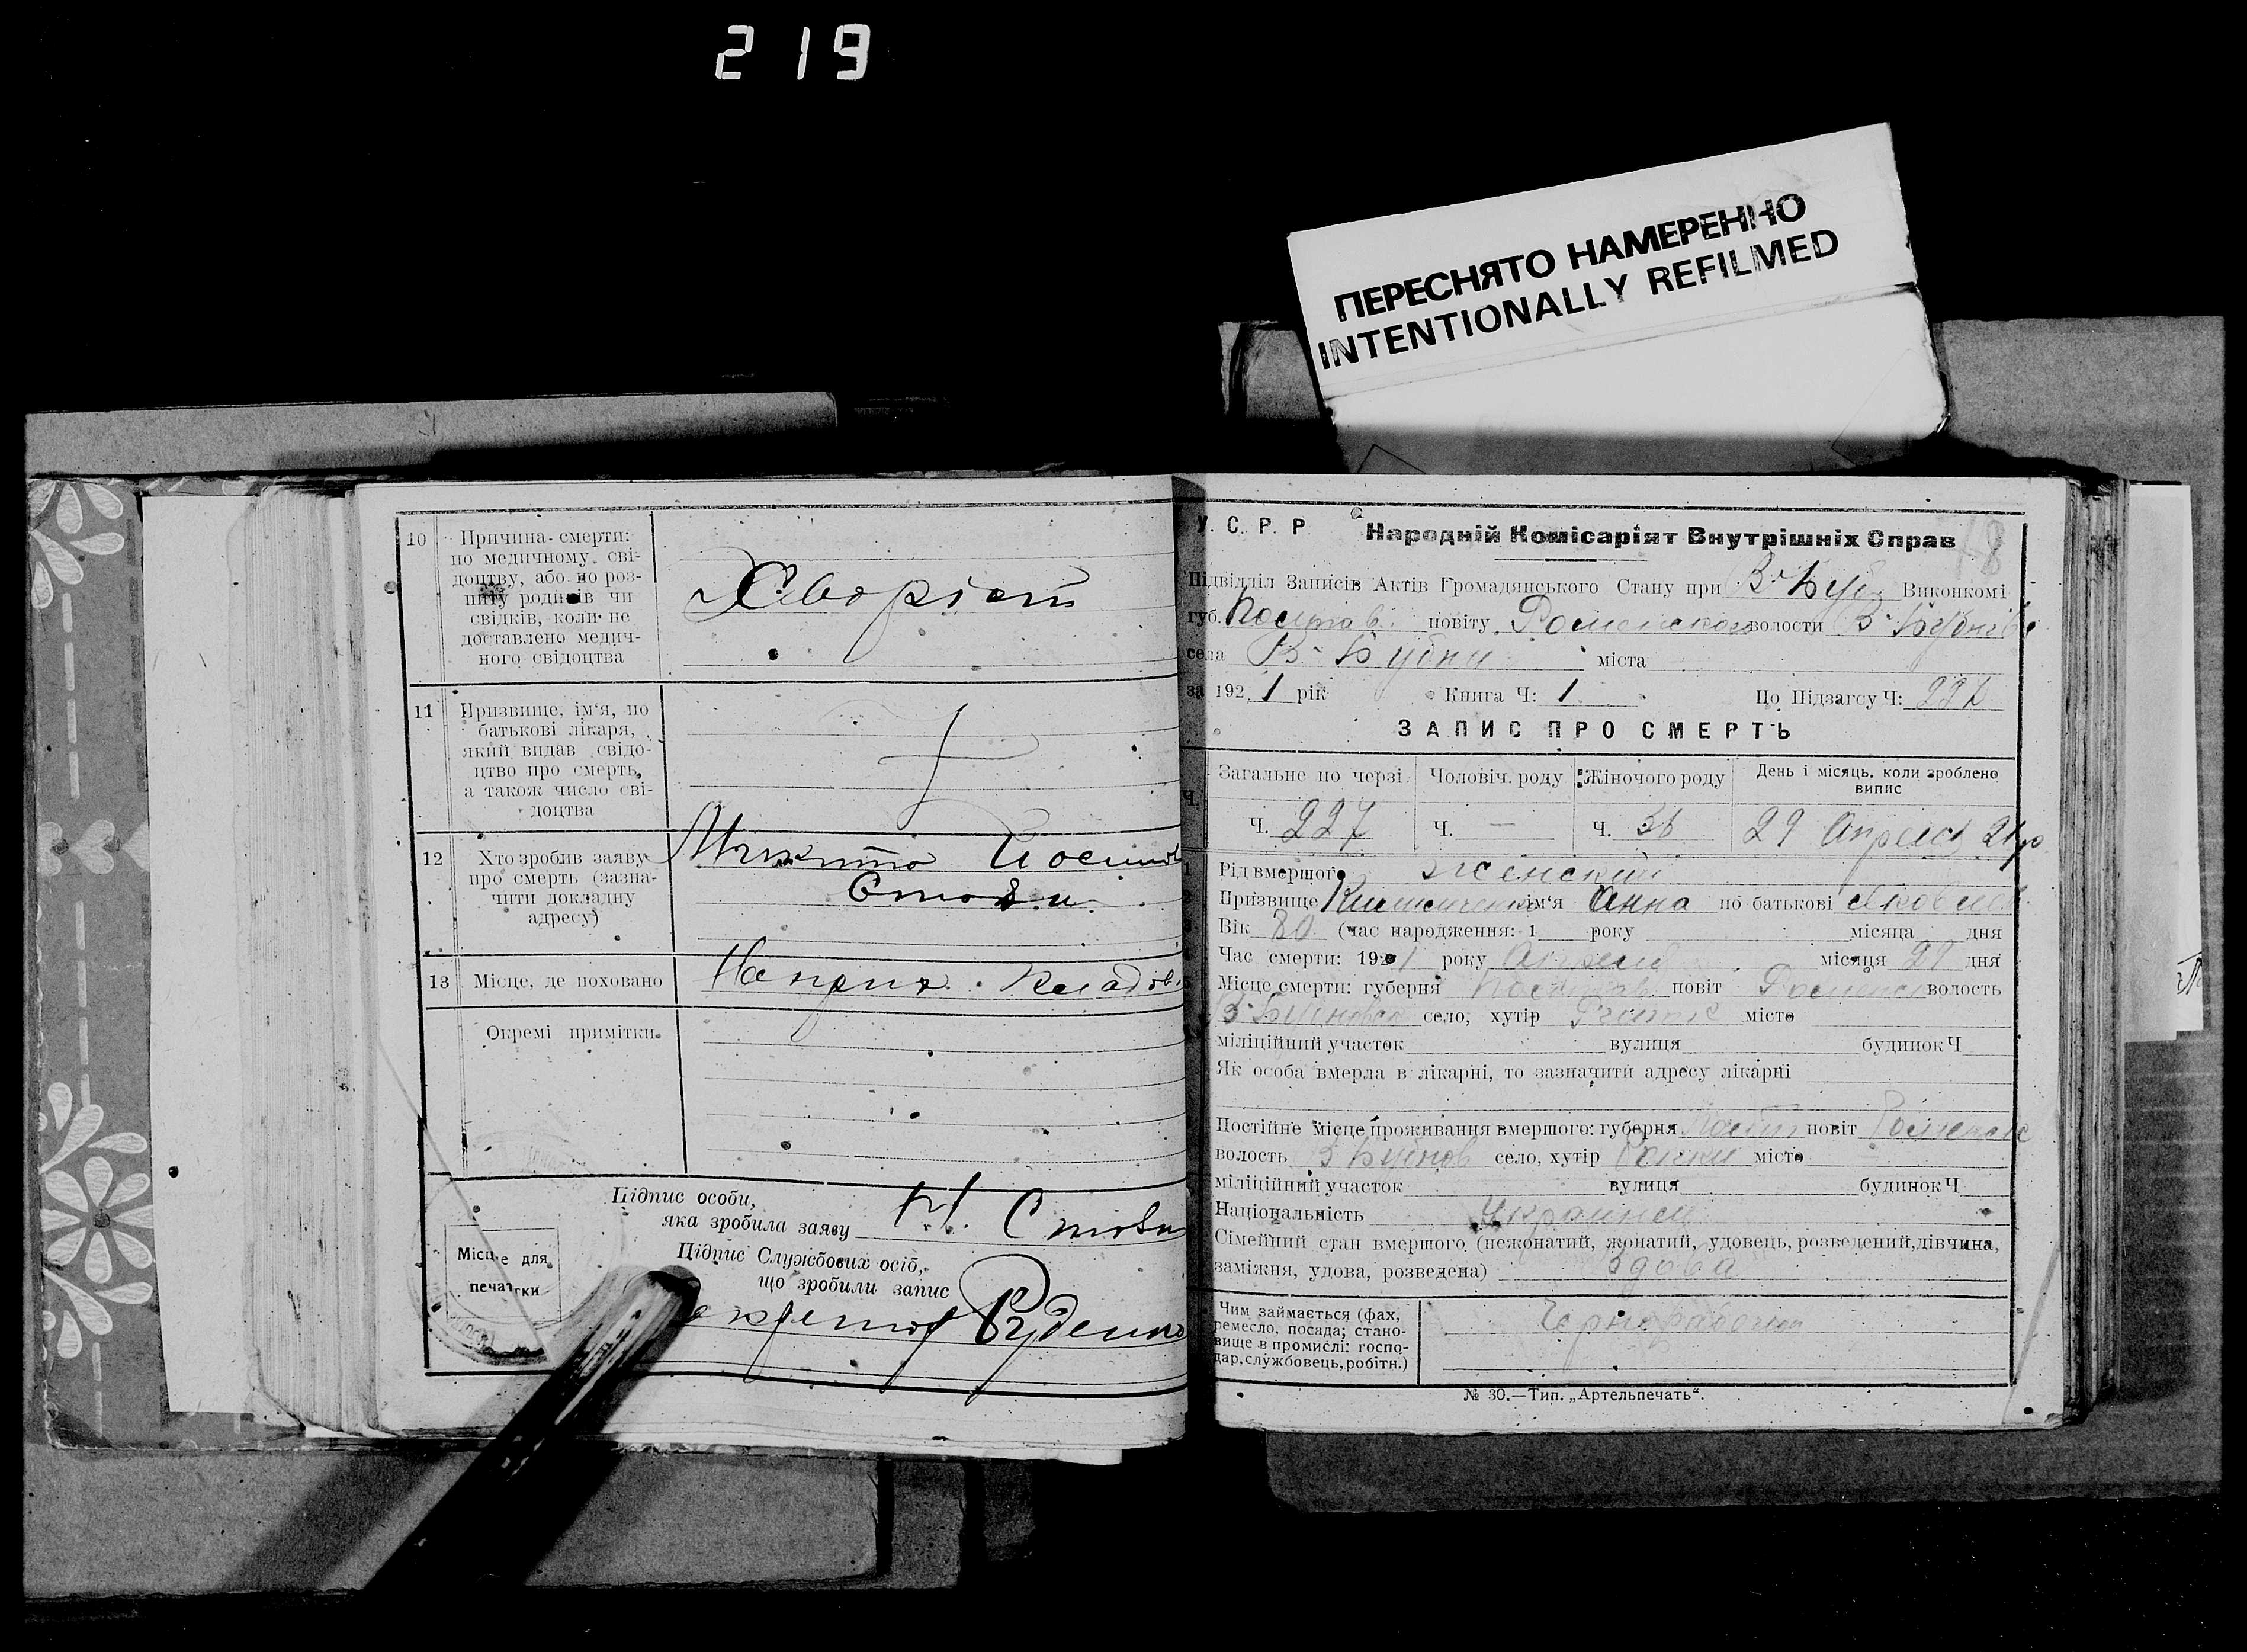 219
ПЕРЕСНЯТО НАМЕРЕННО
INTENTIONALLY REFILMED
10 Причина смерти:
по медичному сві-
доцтву, або по роз-
питу родичів чи
свідків, коли не
доставлено медич-
ного свідоцтва
Хворіст
11 Призвище, ім'я, по
батькові лікаря,
який видав свідо-
цтво про смерть,
а також число сві-
доцтва
12 Хто зробив заяву
про смерть (зазна-
чити докладну
адресу)
Микита
13 Місце, де поховано
Окремі примітки
Підпис особи,
яка зробила заяву
Підпис Службових осіб,
що зробили запис
Руденко
Місце для
печатки
У. С. Р. Р Народній Комісаріят Внутрішніх Справ
78
Підвідділ Записів Актів Громадянського Стану при В-Буб Виконкомі
губ. Полтав. повіту Роменской волости
села В-Бубни міста
за 1921 рік Книга Ч: 1 По Підзагсу Ч:
ЗАПИС ПРО СМЕРТЬ
Загальне по черзі Чоловіч. роду Жіночого роду День і місяць, коли зроблено
випис
Ч. Ч. 227 Ч. — Ч. 36 29 Апреля 21 р
1 Рід вмершого женский
Призвище імя Анна по батькові Яковлев
Вік 80 (час народження: 1 року місяца дня
Час смерти: 1921 року Апреля місяця дня
Місце смерти: губерня Полтав повіт Роменс волость
В-Бубновск село, хутір місто
міліційний участок вулиця будинок Ч
Як особа вмерла в лікарні, то зазначити адресу лікарні
Постійне місце проживання вмершого: губерня Полт повіт Роменск
волость В Бубнов село, хутір місто
міліційний участок вулиця будинок Ч
Національність Украинец
Сімейний стан вмершого (нежонатий, жонатий, удовець, розведений, дівчина,
заміжня, удова, розведена) вдова
Чим займається (фах,
ремесло, посада; стано-
вище в промислі: госпо-
дар, службовець, робітн.)
Чернорабочая
№ 30.—Тип. „Артельпечать“.